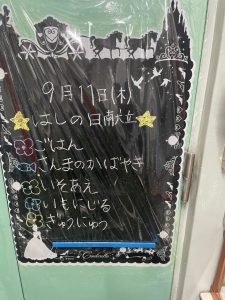 9月17日(木)
はしの日献立
ごはん
さんまのかばやき
いそあえ
いもにじる
ぎゅうにゅう